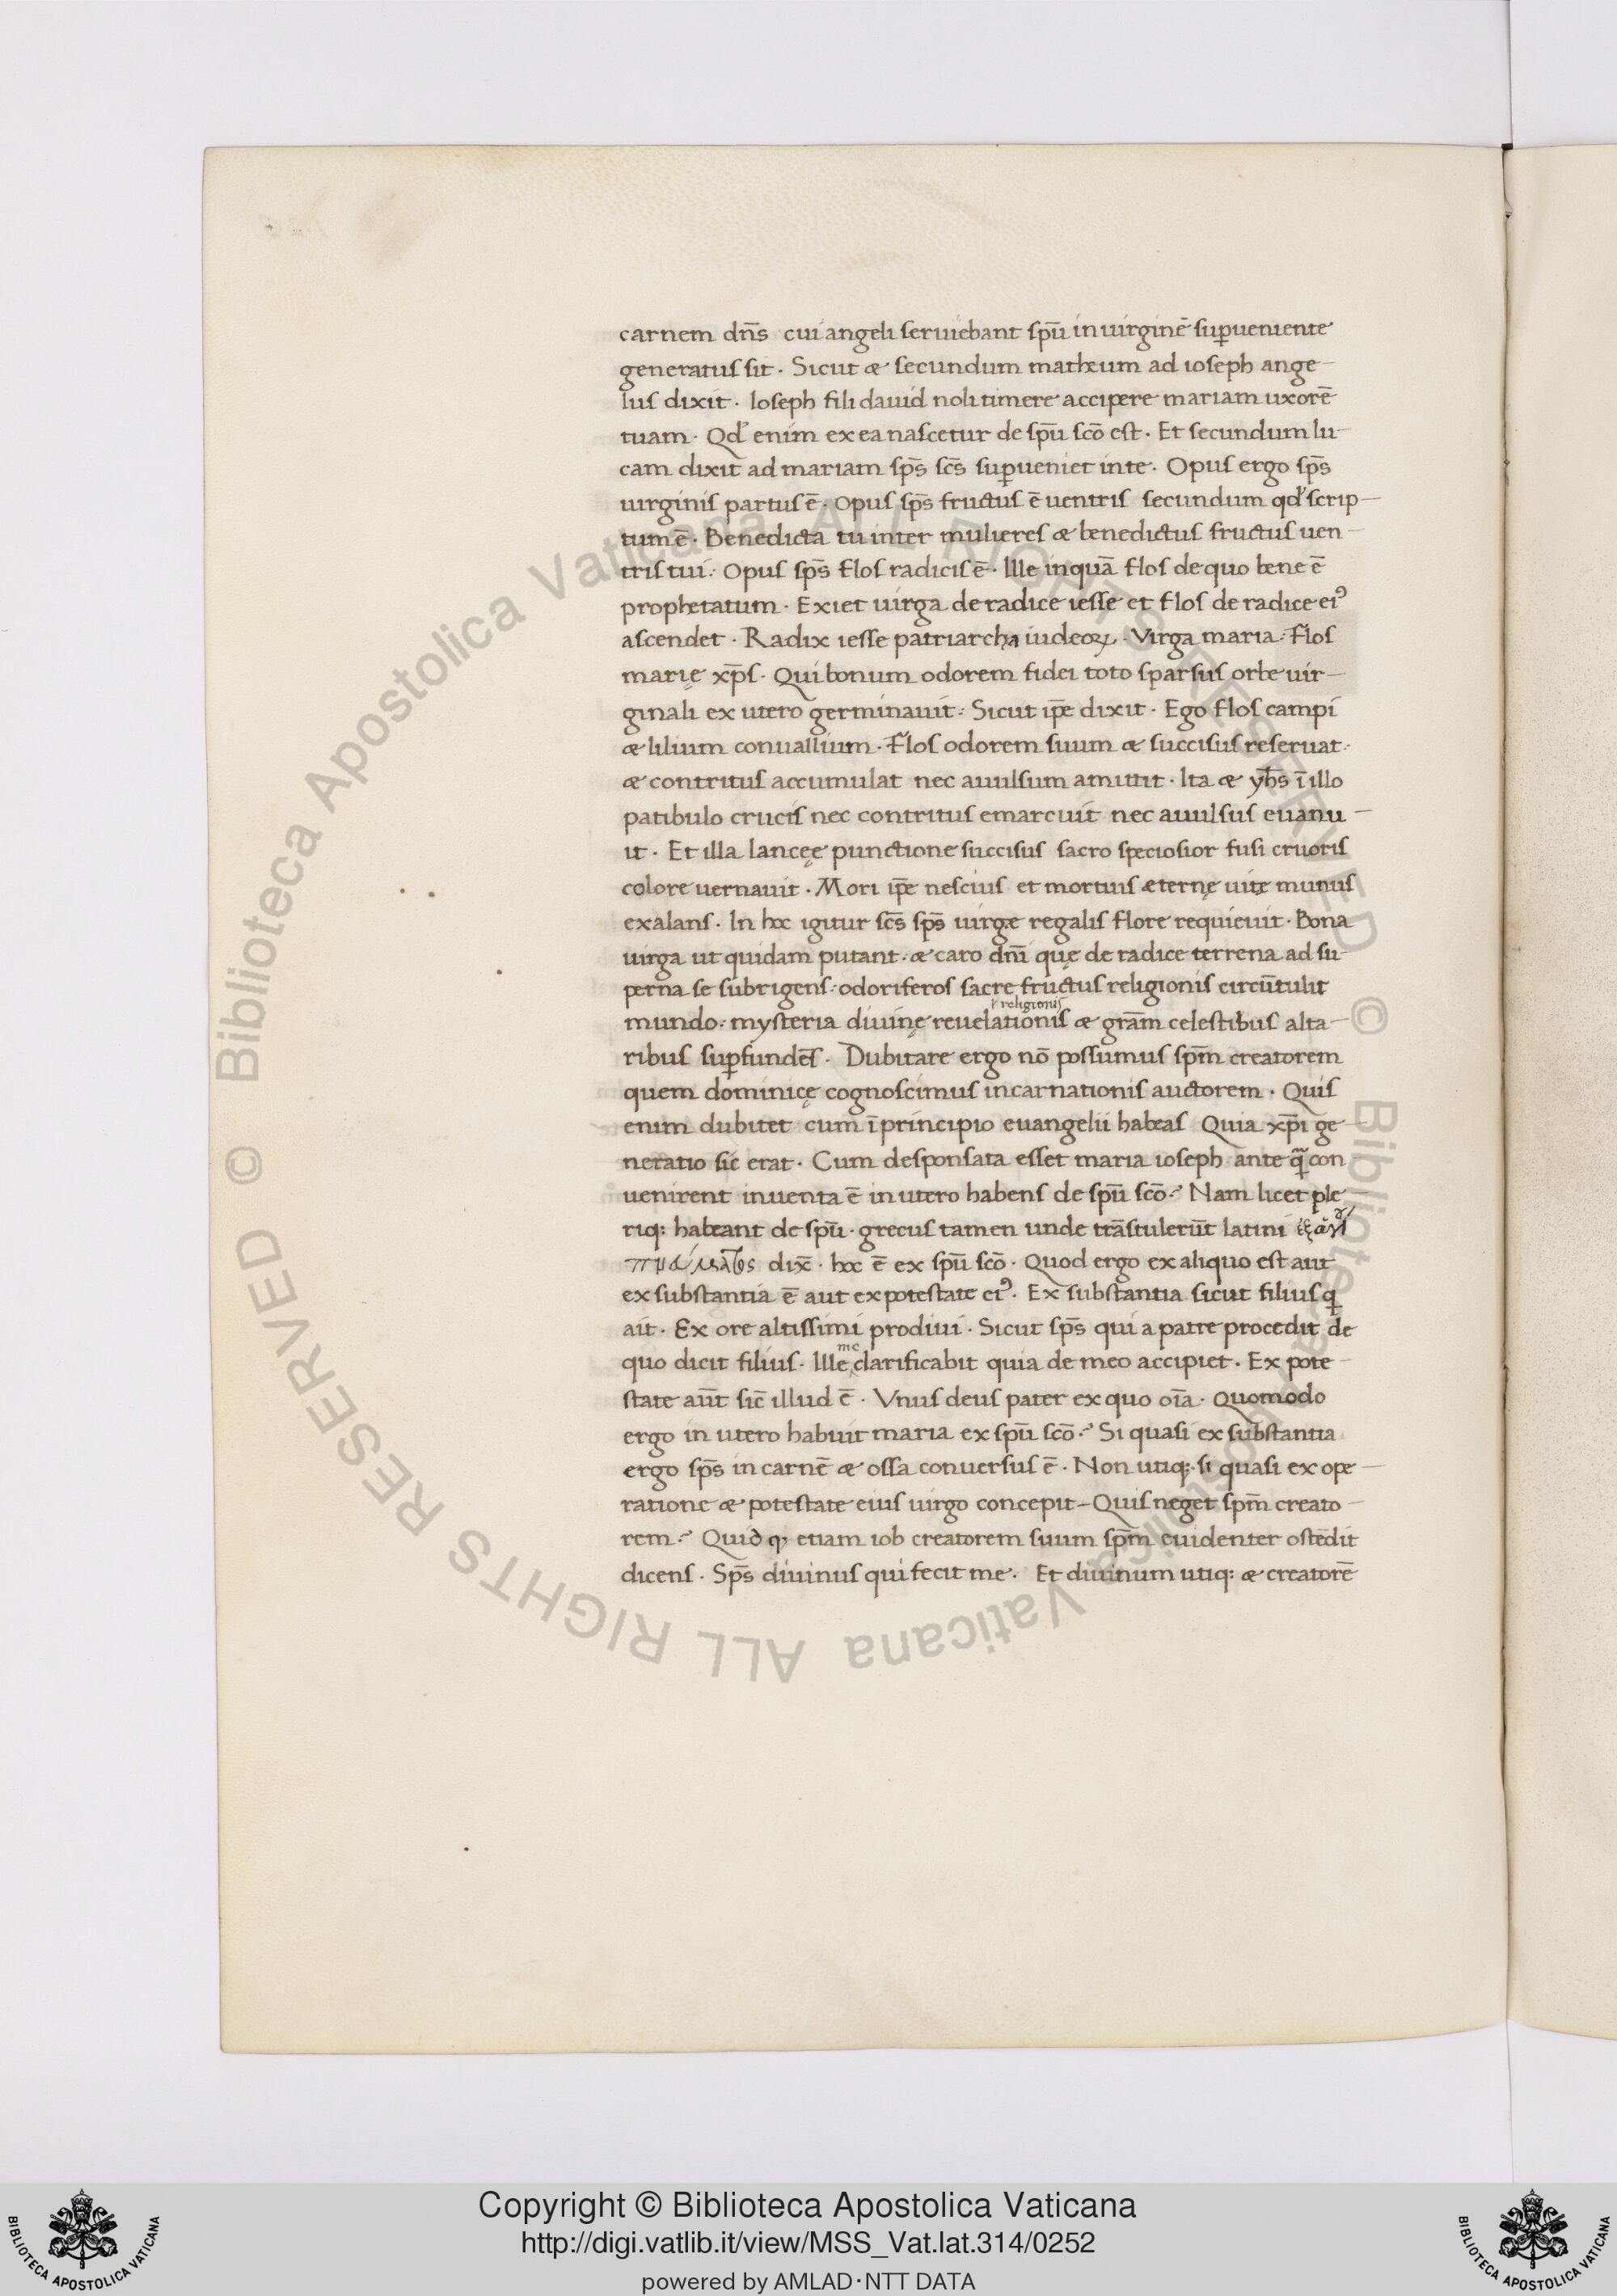 carnem dn̄s cui angeli seruiebant spū in uirginē suꝑueniente
generatus sit · Sicut æ secundum matheum ad ioseph ange-
lus dixit · Ioseph fili dauid noli timere accipere mariam uxorē
tuam · Qd' enim ex ea nascetur de spū scō est · Et secundum lu-
cam dixit ad mariam sps̄ scs̄ suꝑueniet in te · Opus ergo sps̄
uirginis partus ē · Opus sps̄ fructus ē uentris secundum qd' scrip-
tum ē · Benedicta tu inter mulieres æ benedictus fructus uen-
tris tui : Opus sps̄ flos radicis ē · Ille inquā flos de quo bene ē
prophetatum · Exiet uirga de radice iesse et flos de radice eiꝰ
ascendet · Radix iesse patriarcha iudeoꝝ · Virga maria : Flos
marię xp̄s · Qui bonum odorem fidei toto sparsus orbe uir-
ginali ex utero germinauit : Sicut ip̄e dixit · Ego flos campi
æ lilium conuallium · Flos odorem suum æ succisus reseruat :
æ contritus accumulat nec auulsum amittit · Ita æ yh̄s ī illo
patibulo crucis nec contritus emarcuit nec auulsus euanu-
it · Et illa lancęę punctione succisus sacro speciosior fusi cruoris
colore uernauit · Mori ip̄e nescius et mortuis æternę uitę munus
exalans · In hoc igitur scs̄ sps̄ uirgæ regalis flore requieuit · Bona
uirga ut quidam putant · æ caro dn̄i quę de radice terrena ad su-
perna se subrigens : odoriferos sacre fructus religionis circūtulit
ł religionis
mundo : mysteria diuinę reuelationis æ gram̄ celestibus alta-
ribus suꝑfundēs · Dubitare ergo nō possumus spm̄ creatorem
quem dominicę cognoscimus incarnationis auctorem · Quis
enim dubitet cum ī principio euangelii habeas Quia xp̄i ge-
neratio sic erat · Cum desponsata esset maria ioseph ante q̄ con
uenirent inuenta ē in utero habens de spū scō ? Nam licet ple-
riq: habeant de spū · grecus tamen unde trāstulerūt latini
dix̄ · hoc ē ex spū scō · Quod ergo ex aliquo est aut
ex substantia ē aut ex potestate eiꝰ · Ex substantia sicut filius q
ait · Ex ore altissimi prodiui · Sicut sps̄ qui a patre procedit de
me
quo dicit filius · Ille clarificabit quia de meo accipiet · Ex pote-
state aūt sic̄ illud ē · Vnus deus pater ex quo oīa · Quomodo
ergo in utero habuit maria ex spū scō ? Si quasi ex substantia
ergo sps̄ in carnē æ ossa conuersus ē · Non utiq: · si quasi ex ope-
ratione æ potestate eius uirgo concepit - Quis neget spm̄ creato-
rem ? Quid ꝙ etiam iob creatorem suum spm̄ euidenter ostēdit
dicens · Sps̄ diuinus qui fecit me · Et diuinum utiq: æ creatorē
© Biblioteca Apostolica Vaticana ALL RIGHTS RESERVED
© Biblioteca Apostolica Vaticana ALL RIGHTS RESERVED
Copyright © Biblioteca Apostolica Vaticana
http://digi.vatlib.it/view/MSS_Vat.lat.314/0252
powered by AMLAD·NTT DATA
BIBLIOTECA APOSTOLICA VATICANA
BIBLIOTECA APOSTOLICA VATICANA